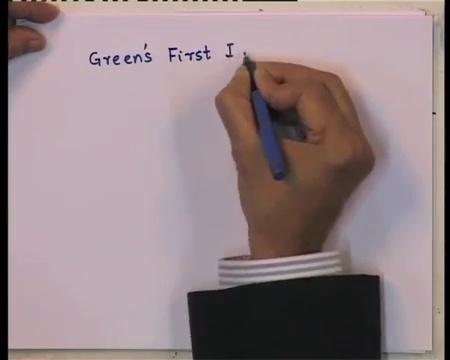 Green's First I